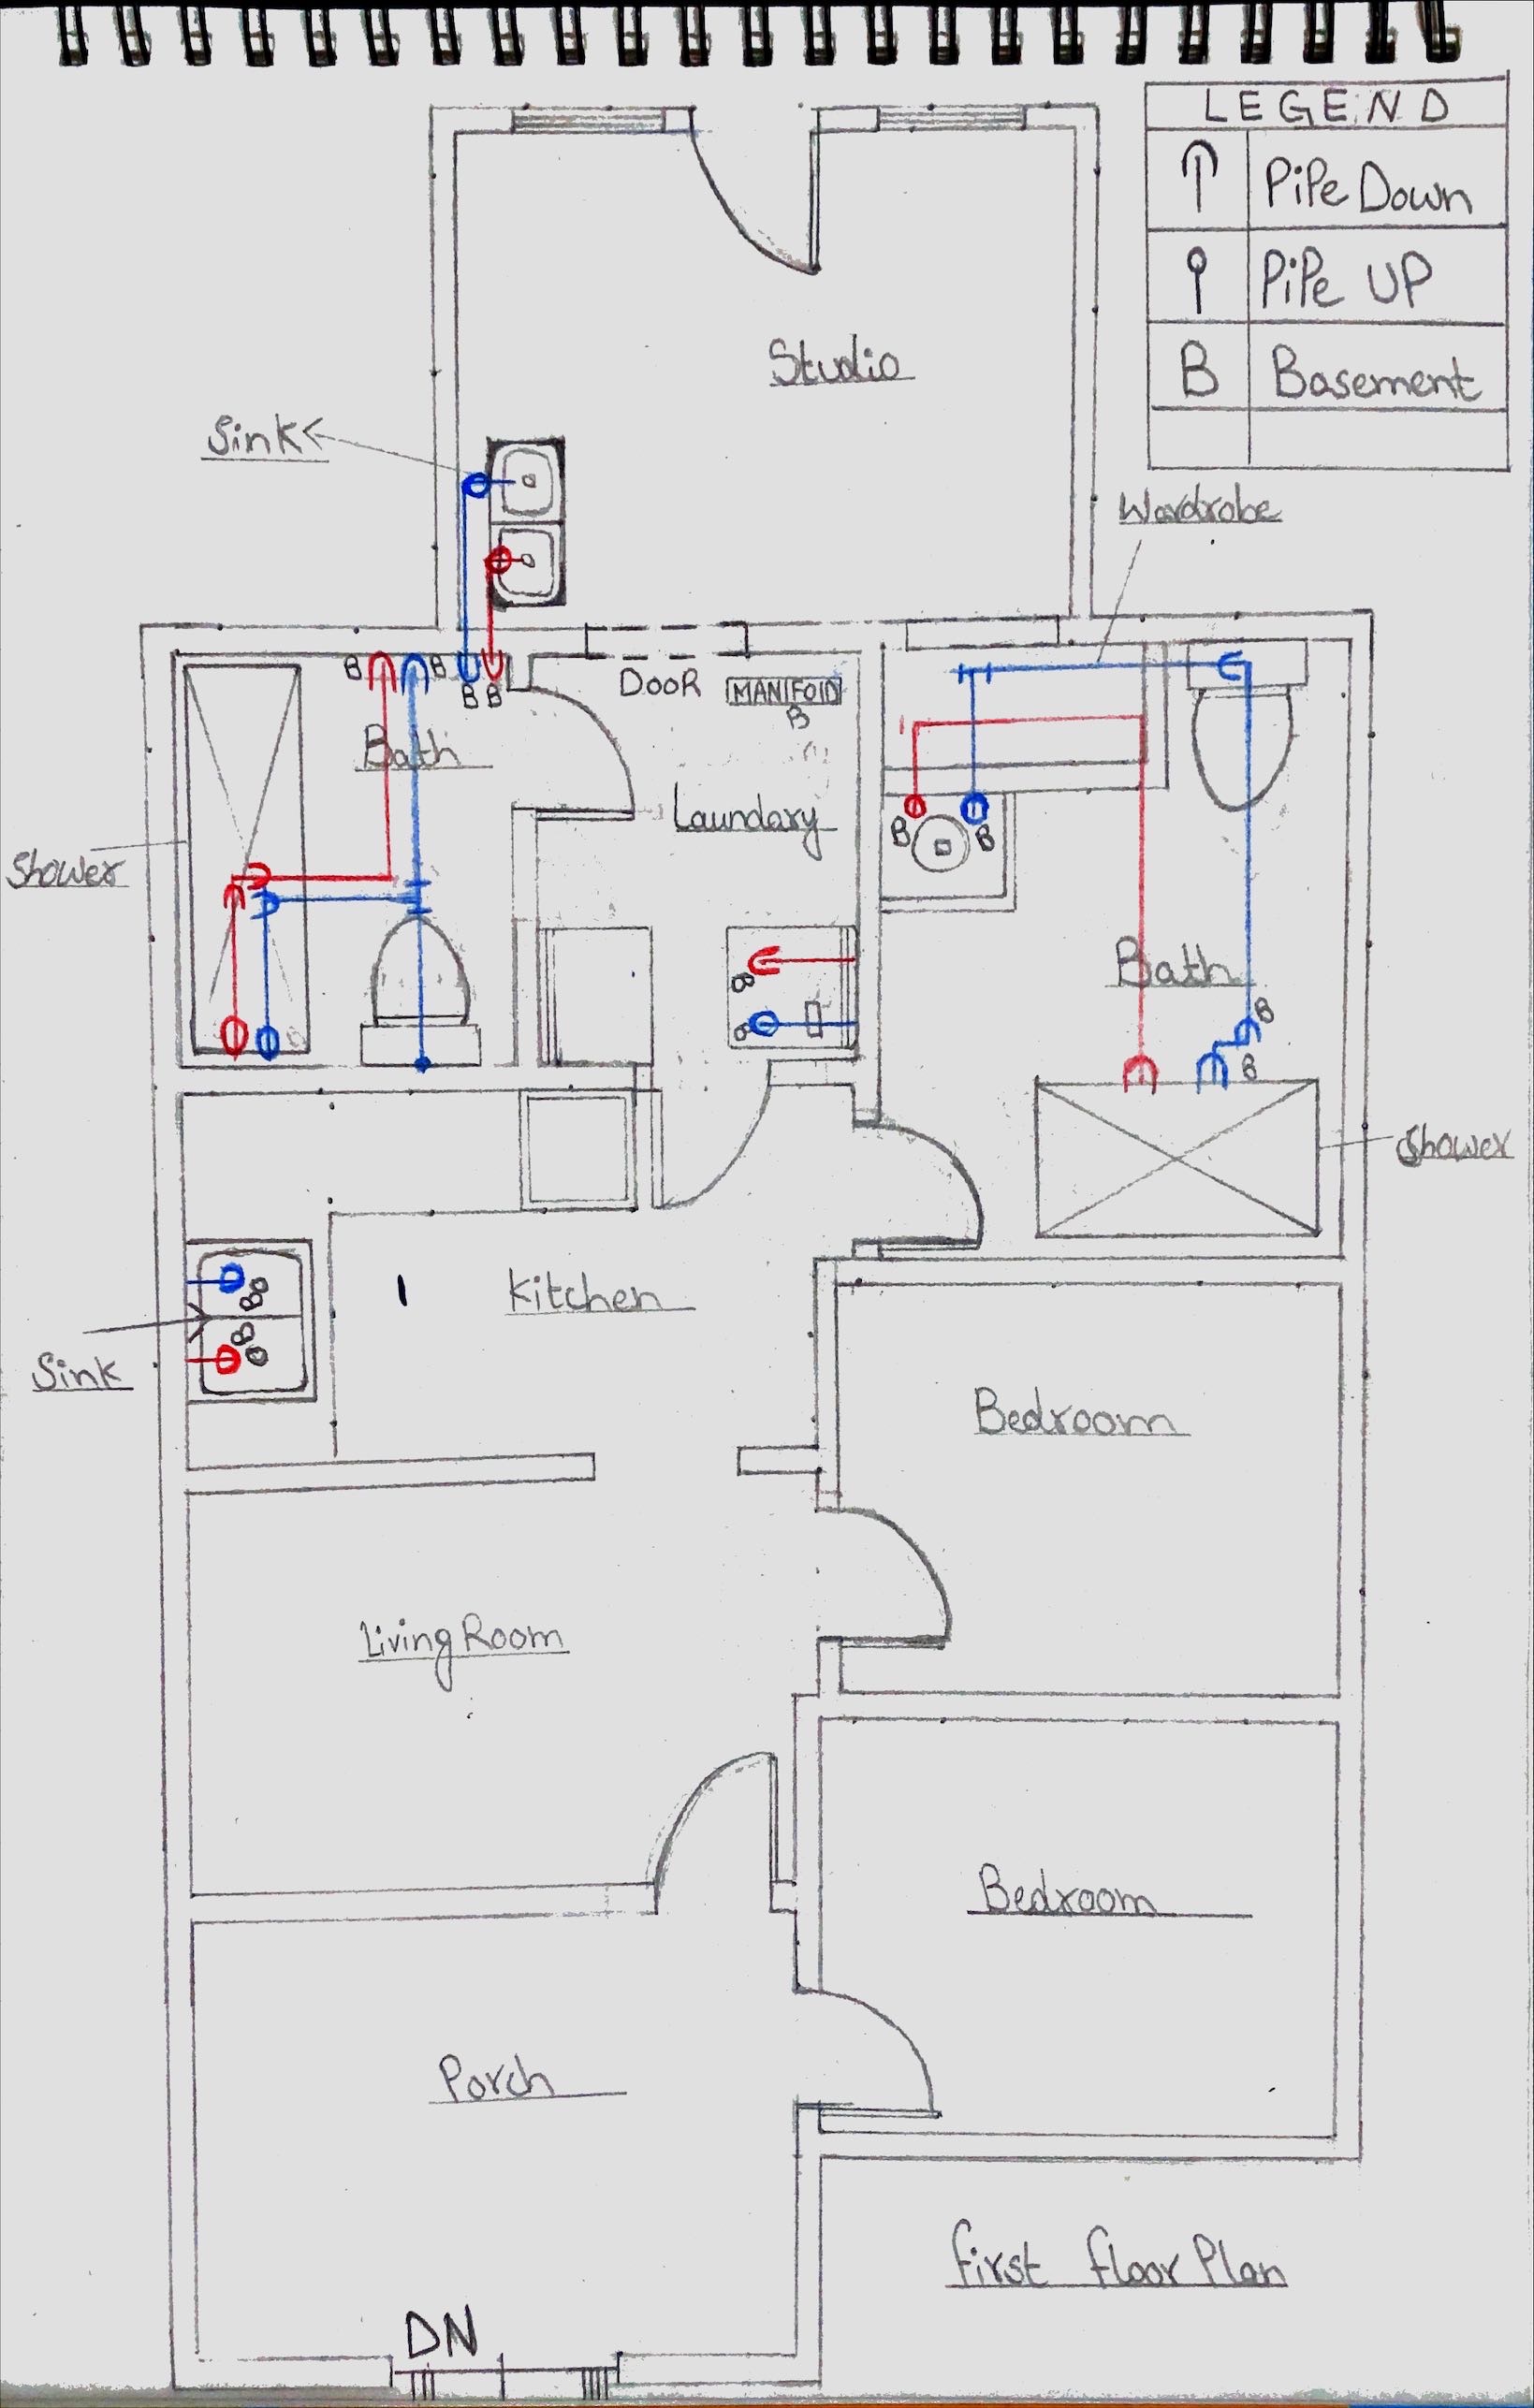 LEGEND
Pipe Down
Pipe UP
B Basement
Studio
Sink
Wardrobe
B B B B
DOOR
MANIFOLD
B
Bath
Laundary
Shower
B B
Bath
B
B
B
B
Shower
Kitchen
B
B
Sink
Bedroom
Living Room
Bedroom
Porch
first floor Plan
DN